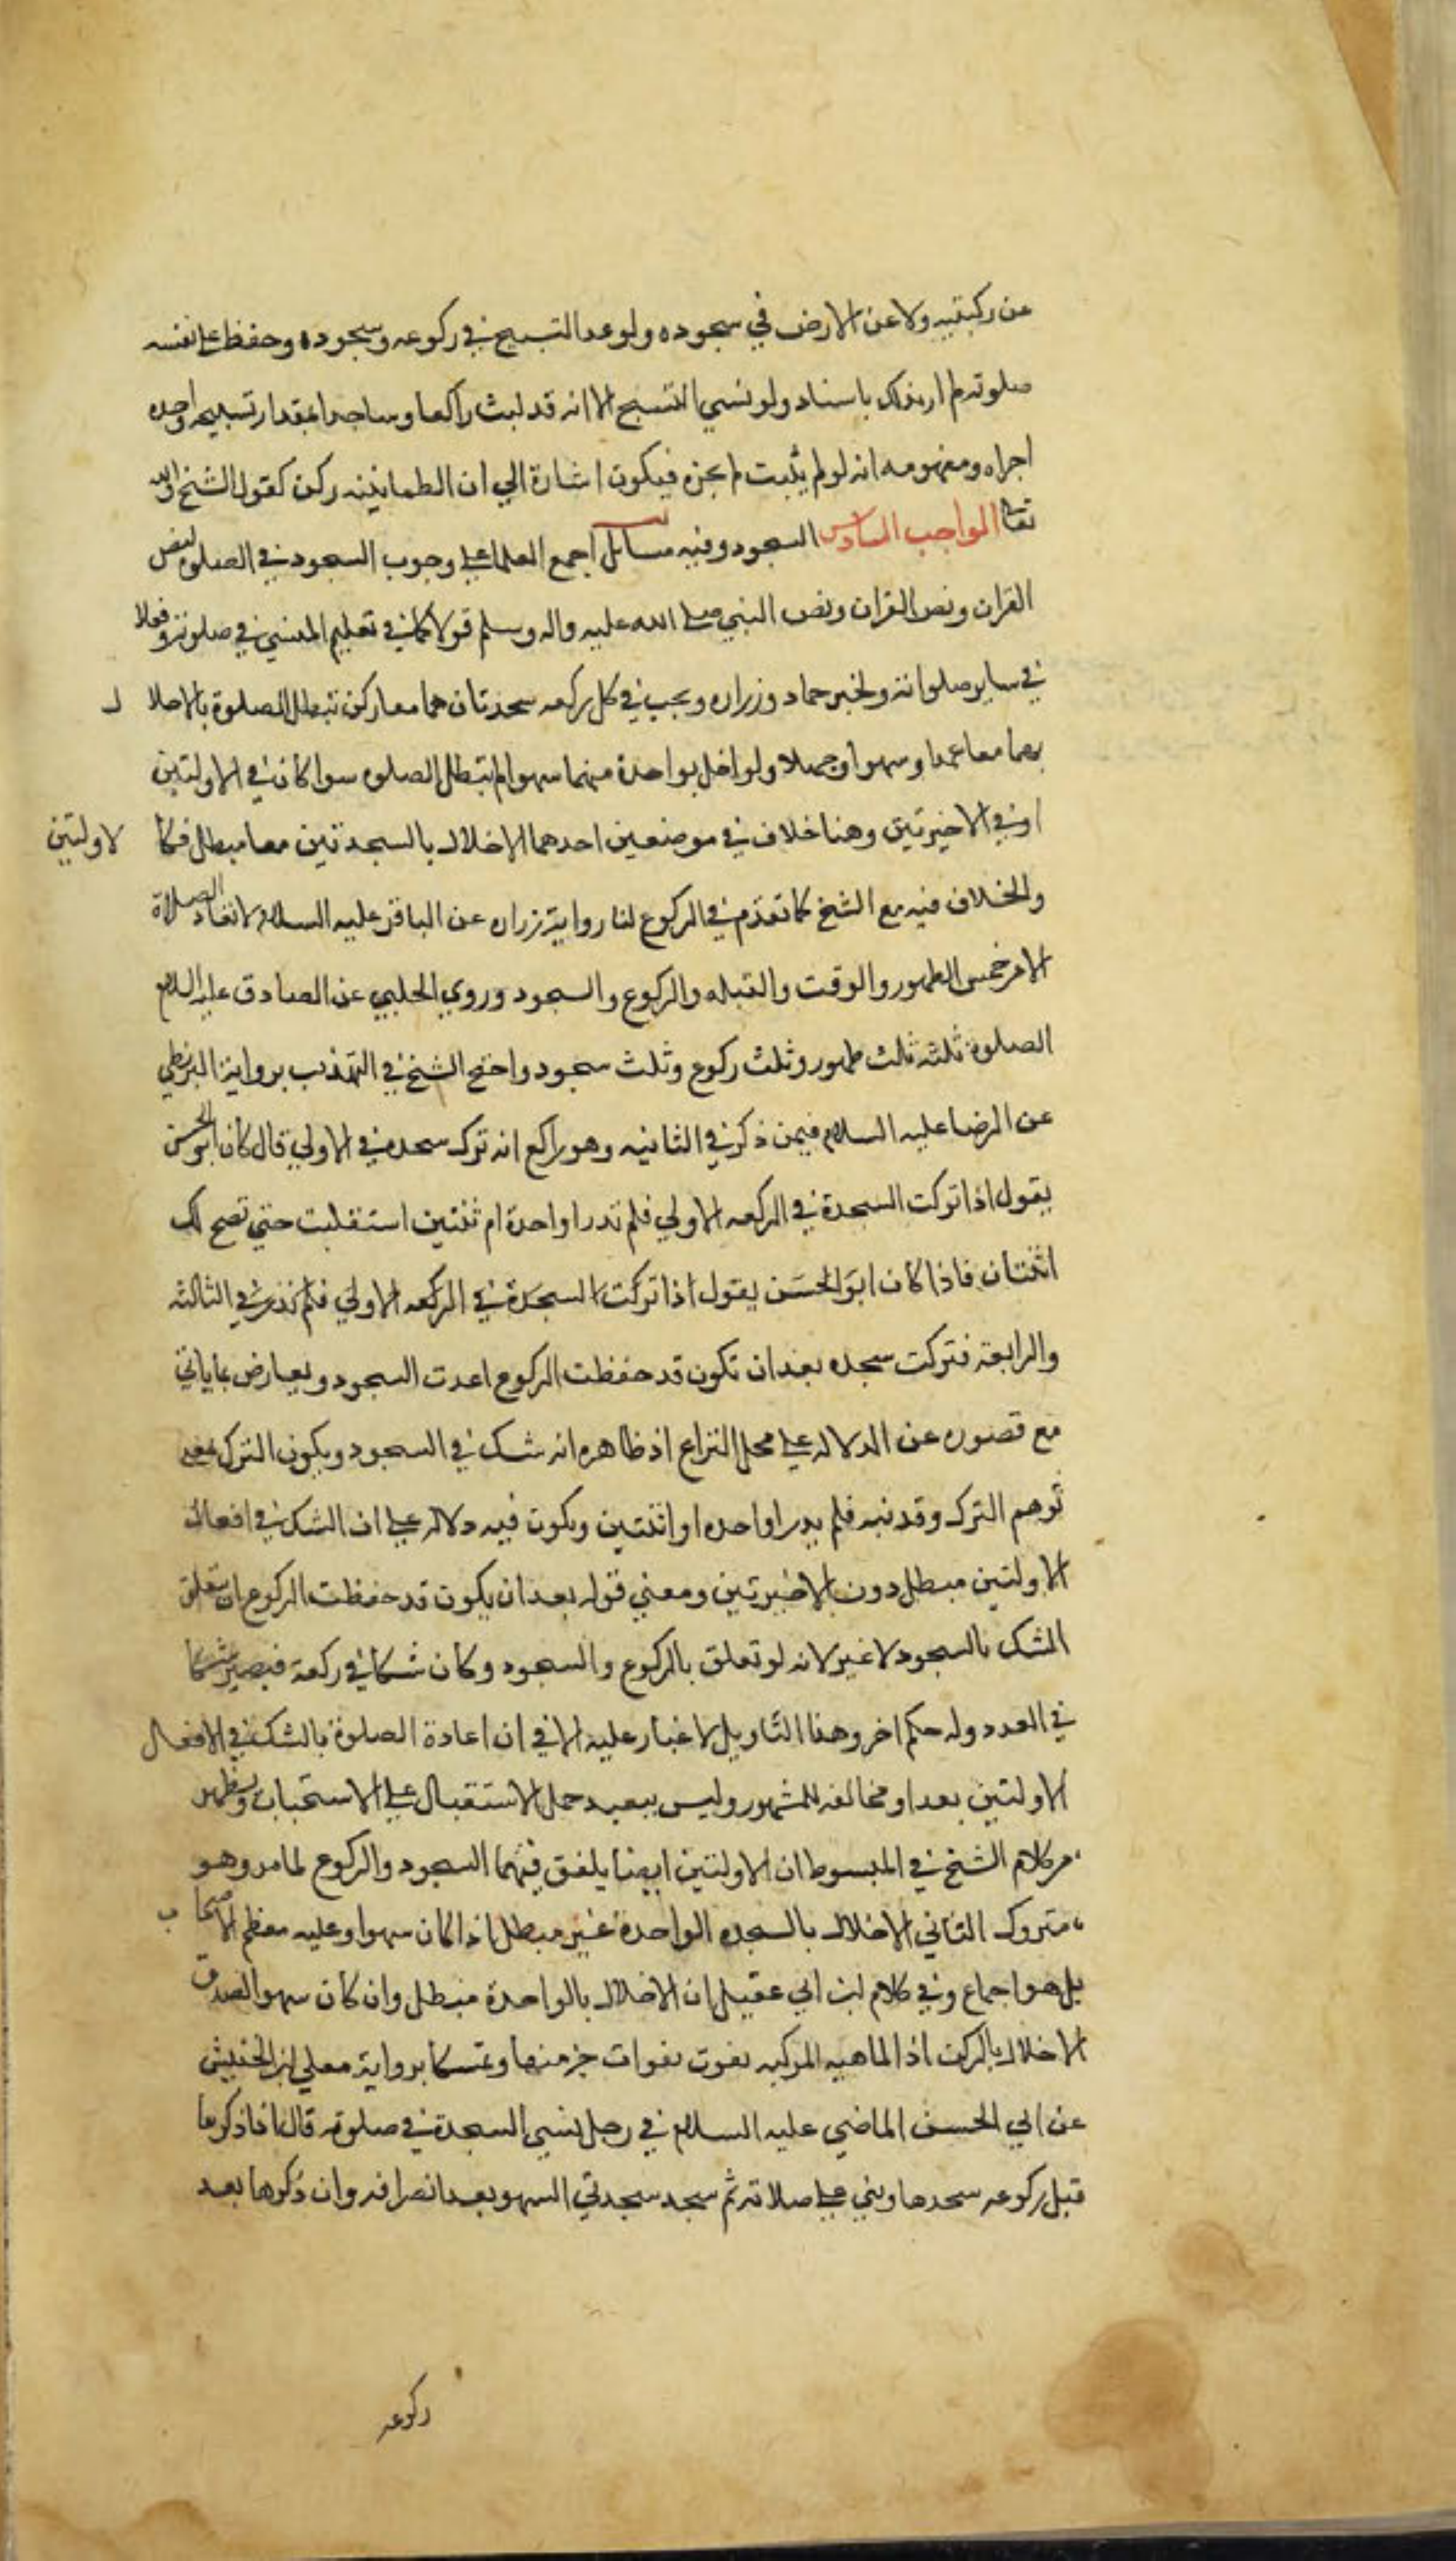 عن ركبتيه ولا عن الارض في سجوده ولو عد التسبيح في ركوعه وسجوده وحفظ على نفسه
صلوته لم ار بذلك باسا ولو نسي التسبيح الا انه قد لبث راكعا وساجدا بمقدار تسبيحه واحده
اجزاه ومفهومه انه لو لم يلبث لم يجزه فيكون اشارة الي ان الطمانينه ركن كقول الشيخ والله
تعا الواجب السادس السجود وفيه مسايل اجمع العلما على وجوب السجود في الصلوه لنص
القران ونص القران ونص النبي صلى الله عليه واله وسلم قولا كما في تعليم المسي في صلوته وفعلا
في ساير صلواته ولخبر حماد وزراره ويجب في كل ركعه سجدتان هما معا ركن تبطل الصلوة بالاخلا ل
بهما معا عمدا وسهوا وجهلا ولو اخل بواحدة منهما سهوا لم تبطل الصلوه سوا كان في الاولتين
او في الاخيرتين وهنا خلاف في موضعين احدهما الاخلال بالسجدتين معا مبطل فكا لاولتين
والخلاف فيه مع الشيخ كما تقدم في الركوع لنا رواية زراره عن الباقر عليه السلام لا تعاد الصلاة
الا من خمس الطهور والوقت والقبله والركوع والسجود وروي الحلبي عن الصادق عليه السلام
الصلوة ثلثه ثلث طهور وثلث ركوع وثلث سجود واحتج الشيخ في التهذيب برواية البزنطي
عن الرضا عليه السلام فيمن ذكر في الثانيه وهو راكع انه ترك سجده في الاولي قال كان ابو الحسن
يقول اذا تركت السجدة في الركعه الاولي فلم تدر واحدة ام ثنتين استقبلت حتي تصح لك
اثنتان فاذا كان ابو الحسن يقول اذا تركت السجدة في الركعه الاولي فلم تدر في الثالثه
والرابعة فتركت سجده بعد ان تكون قد حفظت الركوع اعدت السجود ويعارض بما ياتي
مع قصوره عن الدلاله على محل النزاع اذ ظاهره انه شك في السجود ويكون الترك بمعنى
توهم الترك وقد نبه فلم يدر واحده او اثنتين ويكون فيه دلاله على ان الشك في افعال
الاولتين مبطل دون الاخيرتين ومعني قوله بعد ان يكون قد حفظت الركوع ان يتعلق
الشك بالسجود لا غير لانه لو تعلق بالركوع والسجود وكان شكا في ركعة فيصير شكا
في العدد وله حكم اخر وهذا التاويل لا غبار عليه الا في ان اعادة الصلوة بالشك في الافعال
الاولتين بعدا ومخالفه للمشهور وليس ببعيد حمل الاستقبال على الاستحباب ويظهر
من كلام الشيخ في المبسوط ان الاولتين ايضا يلفق فيهما السجود والركوع لما مر وهو
متروك الثاني الاخلال بالسجده الواحدة غير مبطل اذا كان سهوا وعليه معظم الاصحا ب
بل هو اجماع وفي كلام ابن ابي عقيل ان الاخلال بالواحدة مبطل وان كان سهوا لصدق
الاخلال بالركن اذ الماهيه المركبه تفوت بفوات جز منها وتمسكا برواية معلي ابن الخنيس
عن ابي الحسن الماضي عليه السلام في رجل نسي السجدة في صلوته قال اذا ذكرها
قبل ركوعه سجدها وبني على صلاته ثم سجد سجدتي السهو بعد انصرافه وان ذكرها بعد
ركوعه